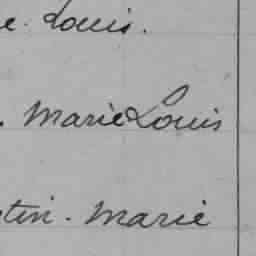 e. Louis.
. Marie Louis
tin. Marie